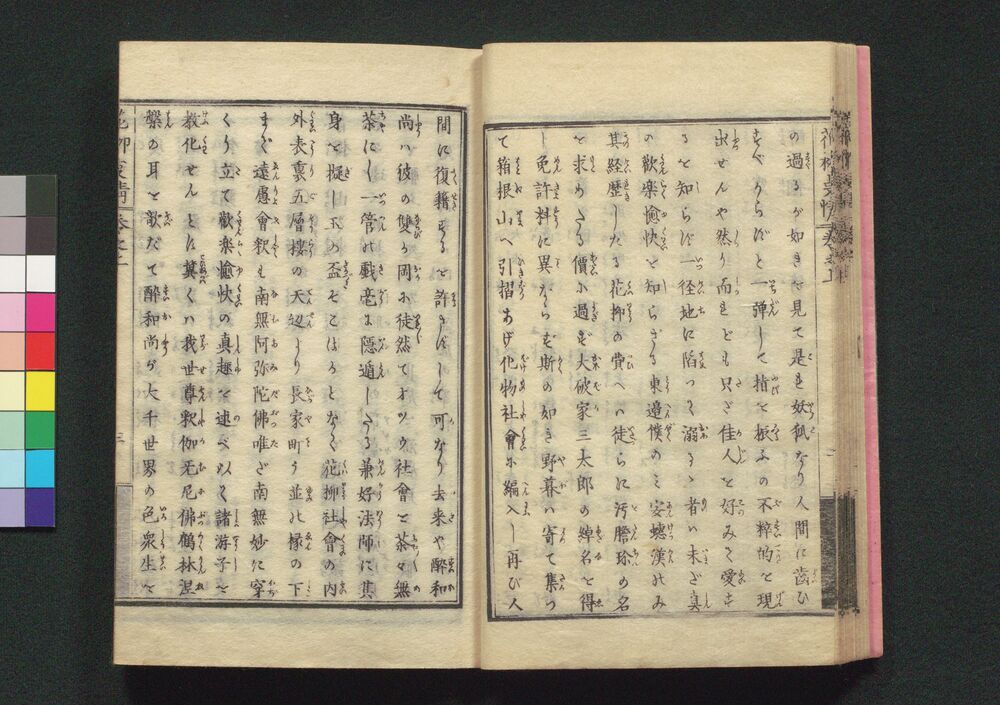 の過るが如きを見て是れ妖狐なり人間に歯ひ
すべからずと一弾して指を振ふの不粋的を現
出せんや然り而れども只ざ佳人を好みて愛す
るを知らず一径地に陥つて溺るゝ者ハ未ざ真
の歓楽愉快を知らざる東邉僕のミ妄
其経歴したる花柳の費へハ徒らに汚謄珍の名
を求めたる價に過ず大破家三太郎の綽名を得
し免許料に異ならず斯の如き野暮ハ寄て集つ
て箱根山へ引摺あげ化物社會に編入し再び人
間に復籍するを許さずして可なり去来や酔和
尚ハ彼の雙が岡に徒然てオツウ社會を茶々無
茶にし一管の戯毫に隠遁したる兼好法師に其
身を擬し玉の盃そこはるとなく花柳社會の内
外表裏五層樓の天辺より長家町の並れ椽の下
まで遠慮會釈も南無阿弥陀佛唯ざ南無妙に穿
くり立て歓楽愉快の真趣を述べ以て諸游子を
教化せんとす冀くハ我世尊釈伽牟尼佛鶴林涅
槃の耳を欹だて酔和尚が大千世界の色衆生を
花柳事情 巻之上